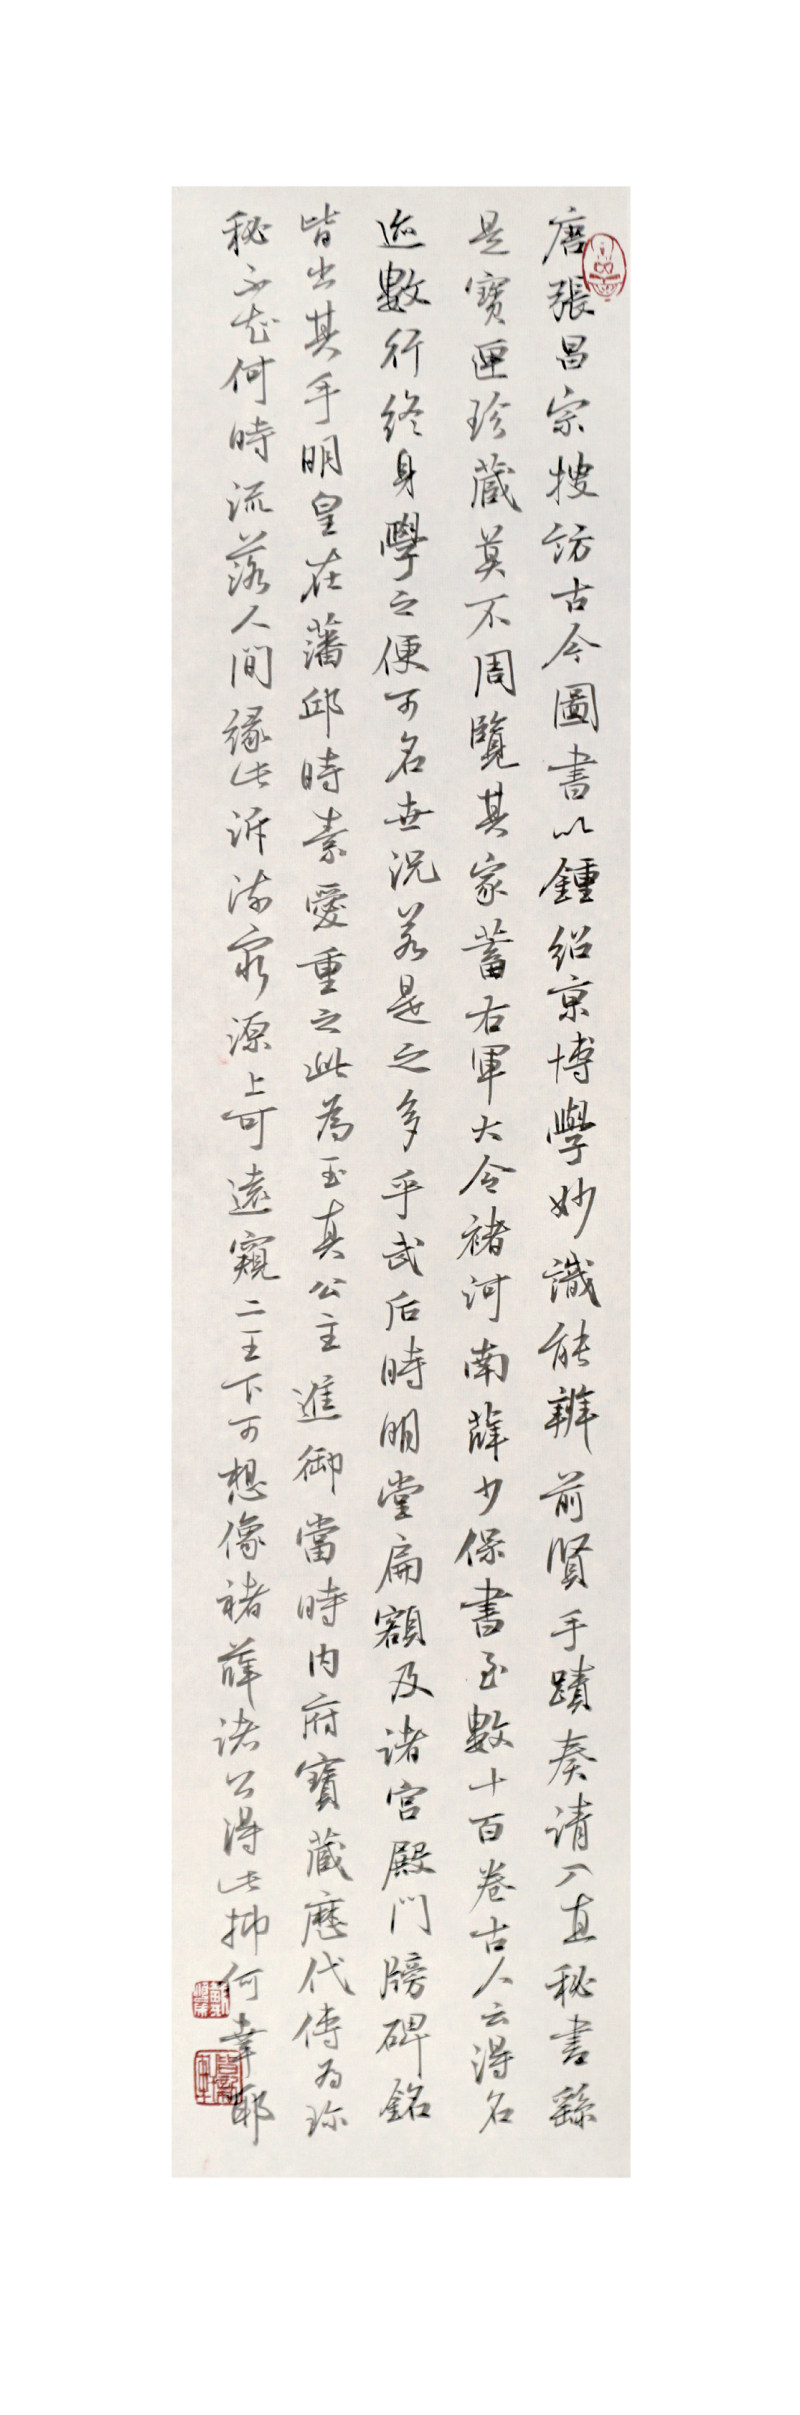 唐張昌宗搜訪古今圖書以鍾紹京博學妙識能辨前賢手蹟奏請入直秘書繇
是寶匣珍蔵莫不周覽其家蓄右軍大令褚河南薛少保書至數十百卷古人云得名
迹數行終身學之便可名世況若是之多乎武后時明堂扁額及諸宮殿門牓碑銘
皆出其手明皇在藩邸時素愛重之此為玉真公主進御當時内府寶蔵歷代傳為珍
秘不知何時流落人間緣此泝流窮源上可遠窺二王下可想像褚薛諸公得此抑何幸耶